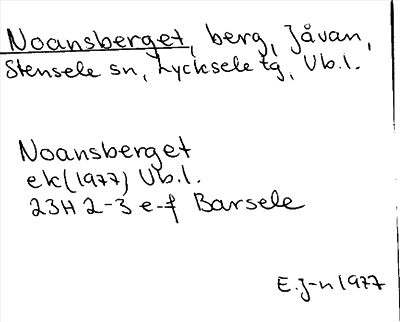 Noansberget, berg, Jåvan,
Stensele sn, Lycksele tg, Vb.l.
Noansberget
ek (1977) Vb.l.
23H 2-3 e-f Barsele
E.J-n 1977